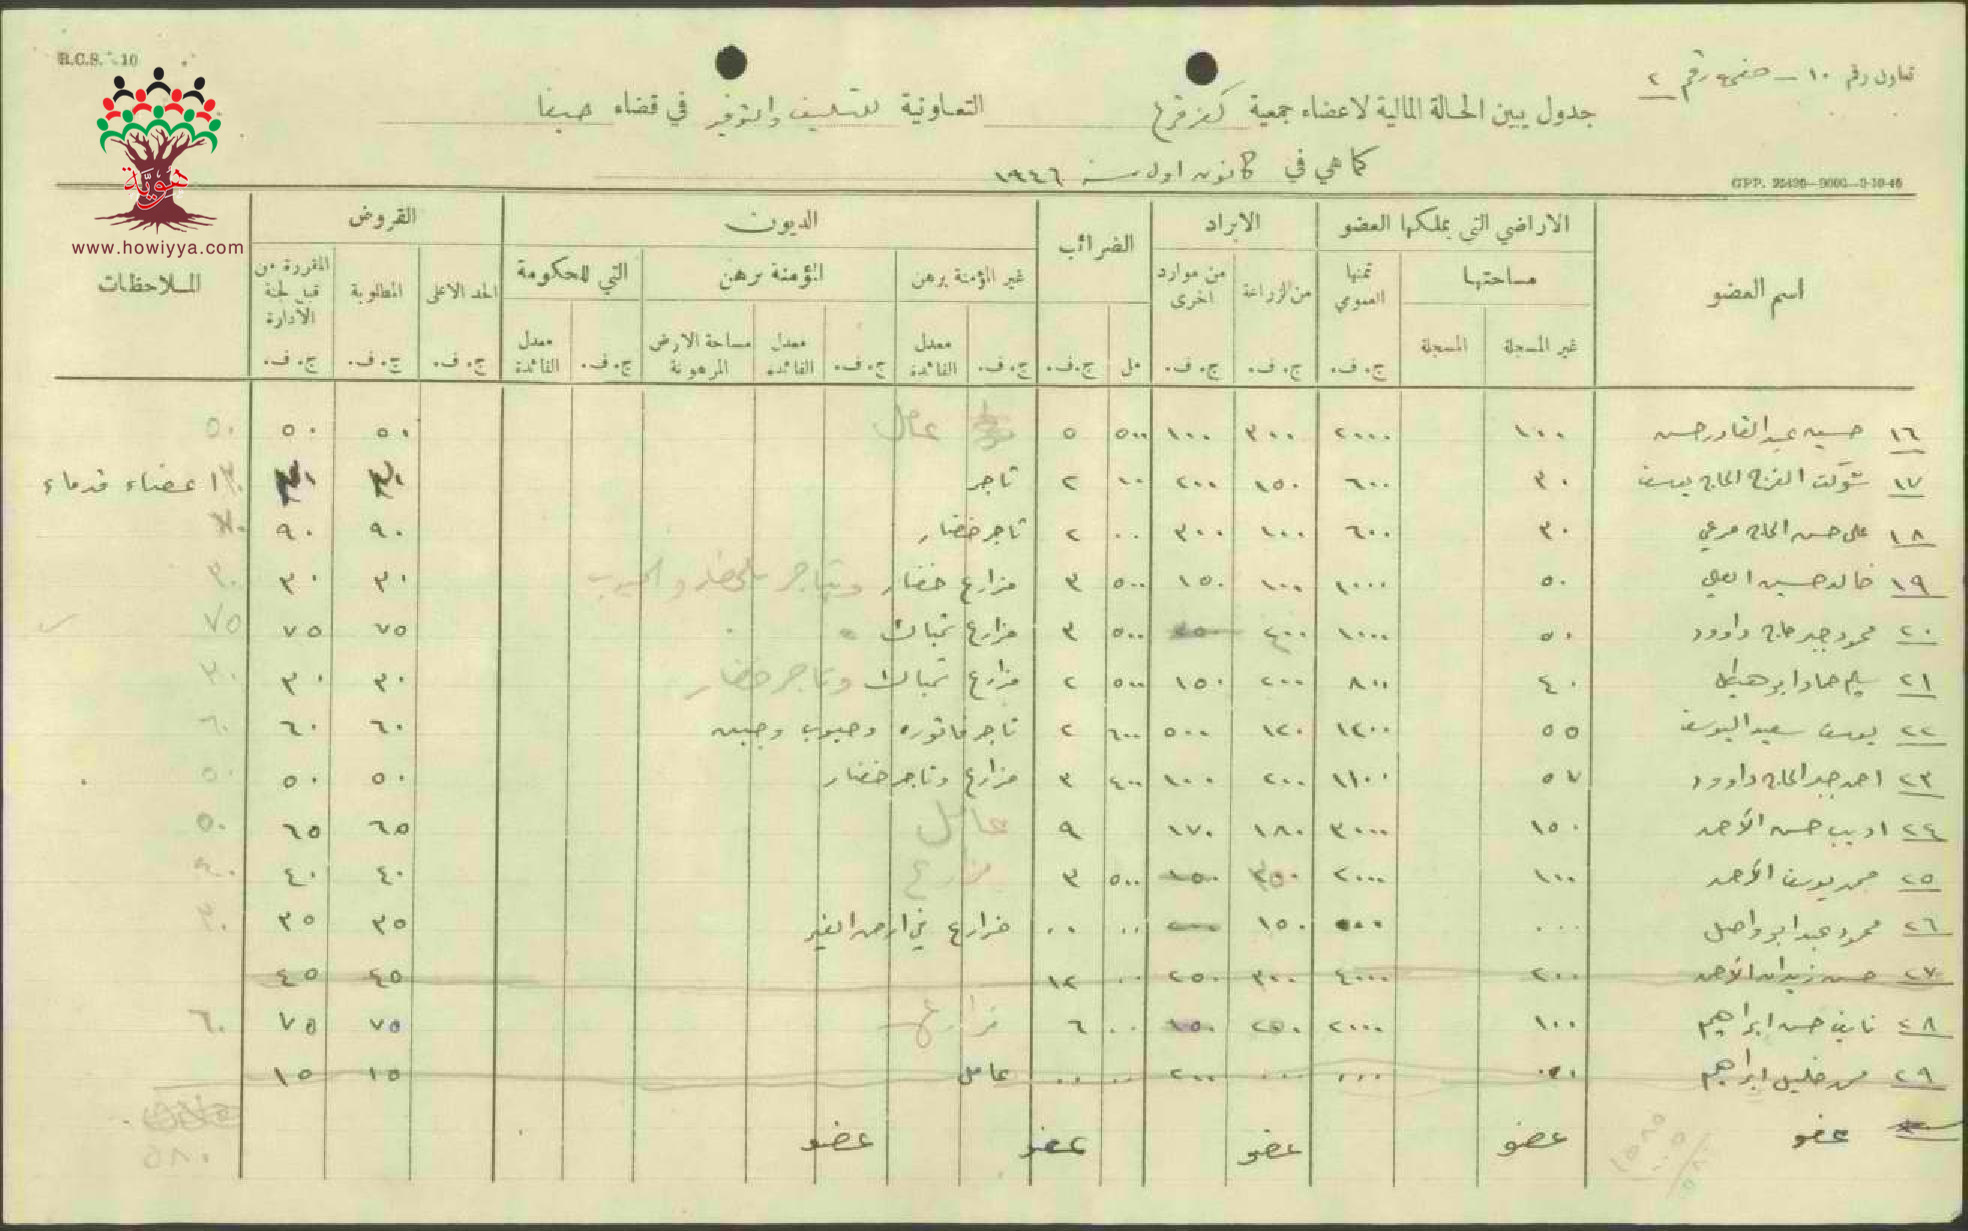 R.C.S. 10
تعاون رقم ١٠ – صفحة رقم ٢
جدول يبين الحالة المالية لاعضاء جمعية كفر قرع التعاونية للتسليف والتوفير في قضاء حيفا
كما هي في كانون اول سنة ١٩٤٦
GPP. 25430—9000—9-10-45
هوية
www.howiyya.com
اسم العضو
الاراضي التي يملكها العضو
الايراد
الضرائب
الديون
القروض
الملاحظات
مساحتها
ثمنها العمومي
من الزراعة
من موارد اخرى
غير المؤمنة برهن
المؤمنة برهن
التي للحكومة
الحد الاعلى
المطلوبة
المقررة من قبل لجنة الادارة
غير المسجلة
المسجلة
ج. ف.
ج. ف.
ج. ف.
مل
ج. ف.
ج. ف.
معدل الفائدة
ج. ف.
معدل الفائدة
مساحة الارض المرهونة
ج. ف.
معدل الفائدة
ج. ف.
ج. ف.
ج. ف.
١٦ حسين عبد القادر حسن ١٠٠ ٢٠٠٠ ٣٠٠ ١٠٠ ٥٠٠ ٥ عامل ٥٠ ٥٠ ٥٠
١٧ شوكت الحاج يوسف ٣٠ ٦٠٠ ١٥٠ ٢٠٠ ١٠ ٢ تاجر اعضاء قدماء
١٨ علي حسن الحاج مرعي ٣٠ ٦٠٠ ١٠٠ ٣٠٠ ٠٠ ٢ تاجر خضار ٩٠ ٩٠
١٩ خالد حسين العلي ٥٠ ١٠٠٠ ١٠٠ ١٥٠ ٥٠٠ ٣ مزارع خضار ويتاجر بالخضار والحبوب ٣٠ ٣٠ ٣٠
٢٠ محمود جبر حاج داوود ٥٠ ١٠٠٠ ٤٠٠ ٥٠٠ ٣ مزارع تمباك ٧٥ ٧٥ ٧٥
٢١ سليم حماد ابو هيكل ٤٠ ٨٠٠ ٢٠٠ ١٥٠ ٥٠٠ ٢ مزارع تمباك وتاجر خضار ٣٠ ٣٠ ٣٠
٢٢ يوسف سعيد اليوسف ٥٥ ١٢٠٠ ١٢٠ ٥٠٠ ٦٠٠ ٢ تاجر فاتوره وحبوب وجبن ٦٠ ٦٠ ٦٠
٢٣ احمد جبر الحاج داوود ٥٧ ١١٠٠ ٢٠٠ ١٠٠ ٤٠٠ ٣ مزارع وتاجر خضار ٥٠ ٥٠ ٥٠
٢٤ اديب حسن الاحمد ١٥٠ ٣٠٠٠ ١٨٠ ١٧٠ ٩ عامل ٦٥ ٦٥ ٥٠
٢٥ محمد يوسف الاحمد ١٠٠ ٢٠٠٠ ٣٥٠ ١٥٠ ٥٠٠ ٣ مزارع ٤٠ ٤٠ ٤٠
٢٦ محمود عبد ابو واصل ٠٠٠ ٠٠٠ ١٥٠ ٠٠ ٠٠ مزارع في ارض الغير ٣٥ ٣٥ ٣٠
٢٧ حسن زيدان الاحمد ٢٠٠ ٤٠٠٠ ٣٠٠ ٢٥٠ ٠٠ ١٢ ٤٥ ٤٥
٢٨ نايف حسن ابراهيم ١٠٠ ٢٠٠٠ ٢٥٠ ١٥٠ ٠٠ ٦ مزارع ٧٥ ٧٥ ٦٠
٢٩ حسن خليل ابراهيم ٠٠٠ ٠٠٠ ٢٠٠ ٠٠ ٠٠ عامل ١٥ ١٥
عضو عضو عضو عضو عضو
٥٨٠